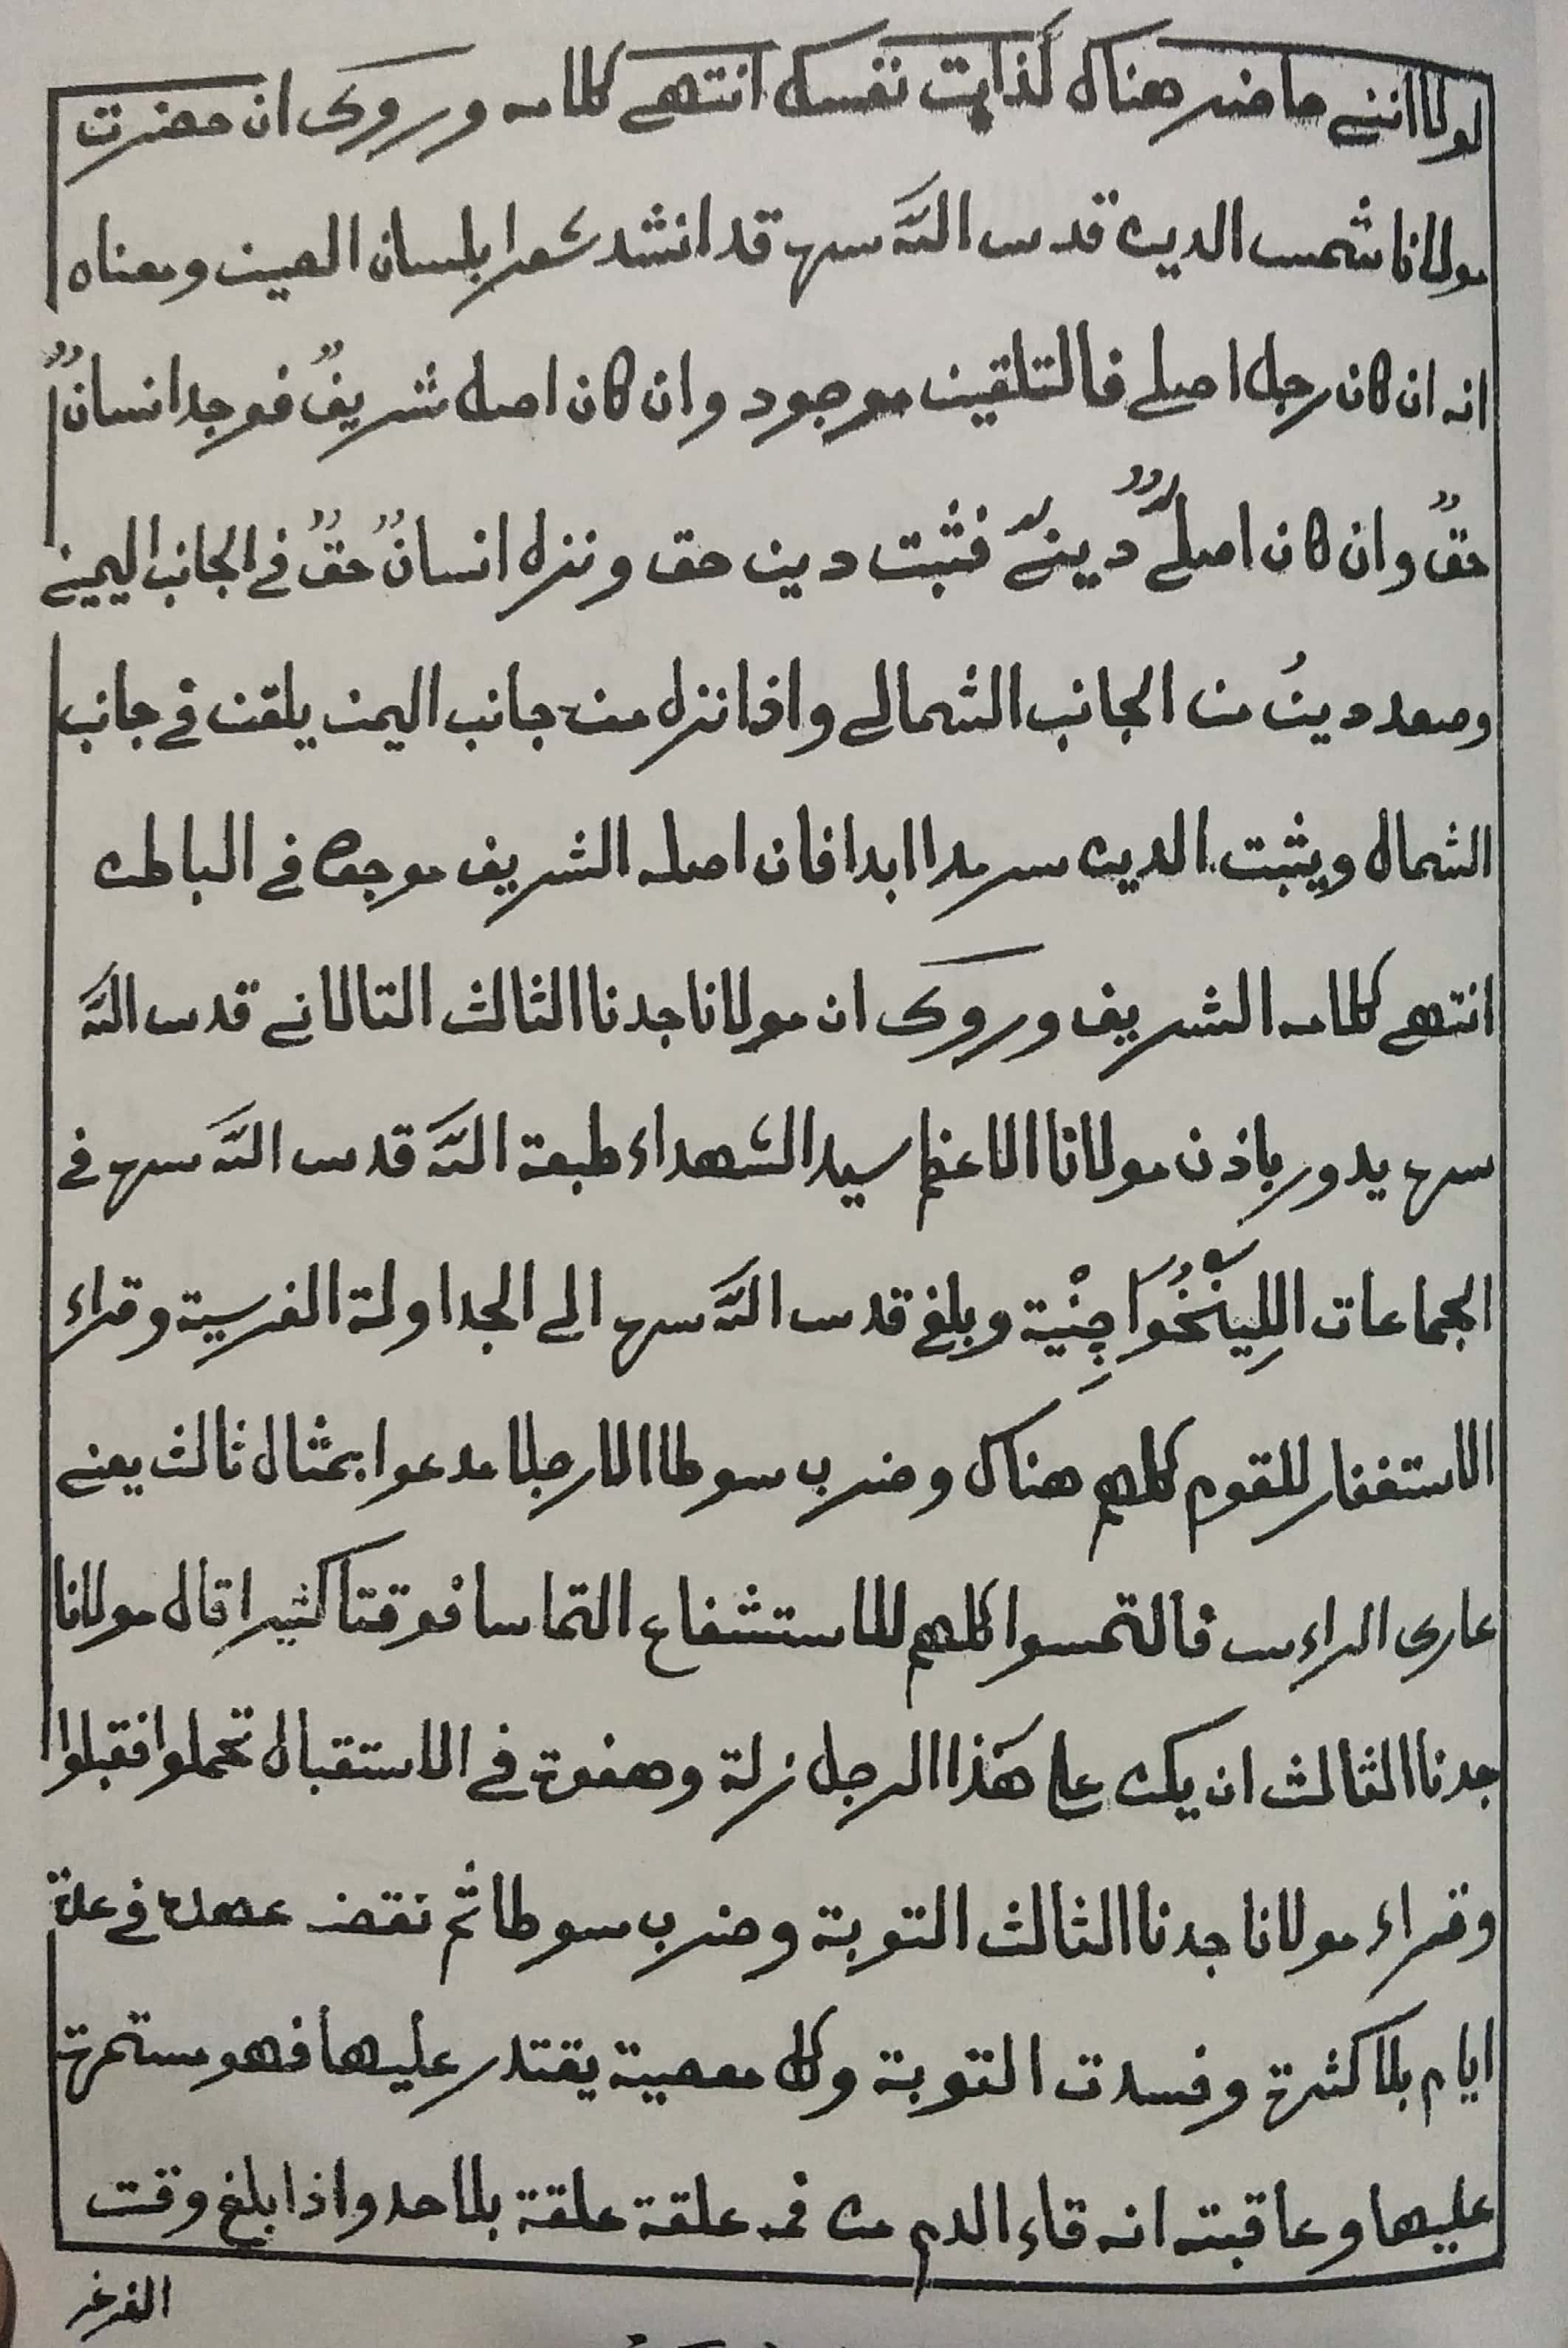 لولا اننى حاضر هناك لذابت نفسك انتهى كلامه وروى ان حضرت
مولانا شمس الدين قدس الله سره قد انشد شعرا بلسان الصين ومعناه
انه ان كان رجل اصلى فالتلقين موجود وان كان اصله شريفٌ فوجد انسانٌ
حقٌ وان كان اصلىٌ دينىٌ فثبت دين حق ونزل انسانٌ حقٌ فى الجانب اليمين
وصعد دينُ من الجانب الشمالى واذا نزل من جانب اليمن يلقن فى جانب
الشمال ويثبت الدين سرمدا ابدا فان اصله الشريف موجود فى الباطن
انتهى كلامه الشريف وروى ان مولانا جدنا الثالث التالانى قدس الله
سره يدور باذن مولانا الاعظم سيد الشهداء طبعة الله قدس الله سره فى
الجماعات وبلغ قدس الله سره الى الجداولة الغربية وقراء
الاستغفار للقوم كلهم هناك وضرب سوطا الا رجلا مدعوا بمثال ثالث يعنى
عارى الراءس فالتمسوا كلهم للاستشفاع التماسا فوقتا كثيرا قال مولانا
جدنا الثالث ان يكن على هٰذا الرجل زلة وهفوة فى الاستقبال تحملوا فقبلوا
وقراء مولانا جدنا الثالث التوبة وضرب سوطا ثم نقض عهده فى عدة
ايام بلا كثرة وفسدت التوبة وكل معصية يقتدر عليها فهو مستمرة
عليها وعاقبته انه قاء الدم من فمه علقة علقة بلا حد واذا بلغ وقت
الغرغر